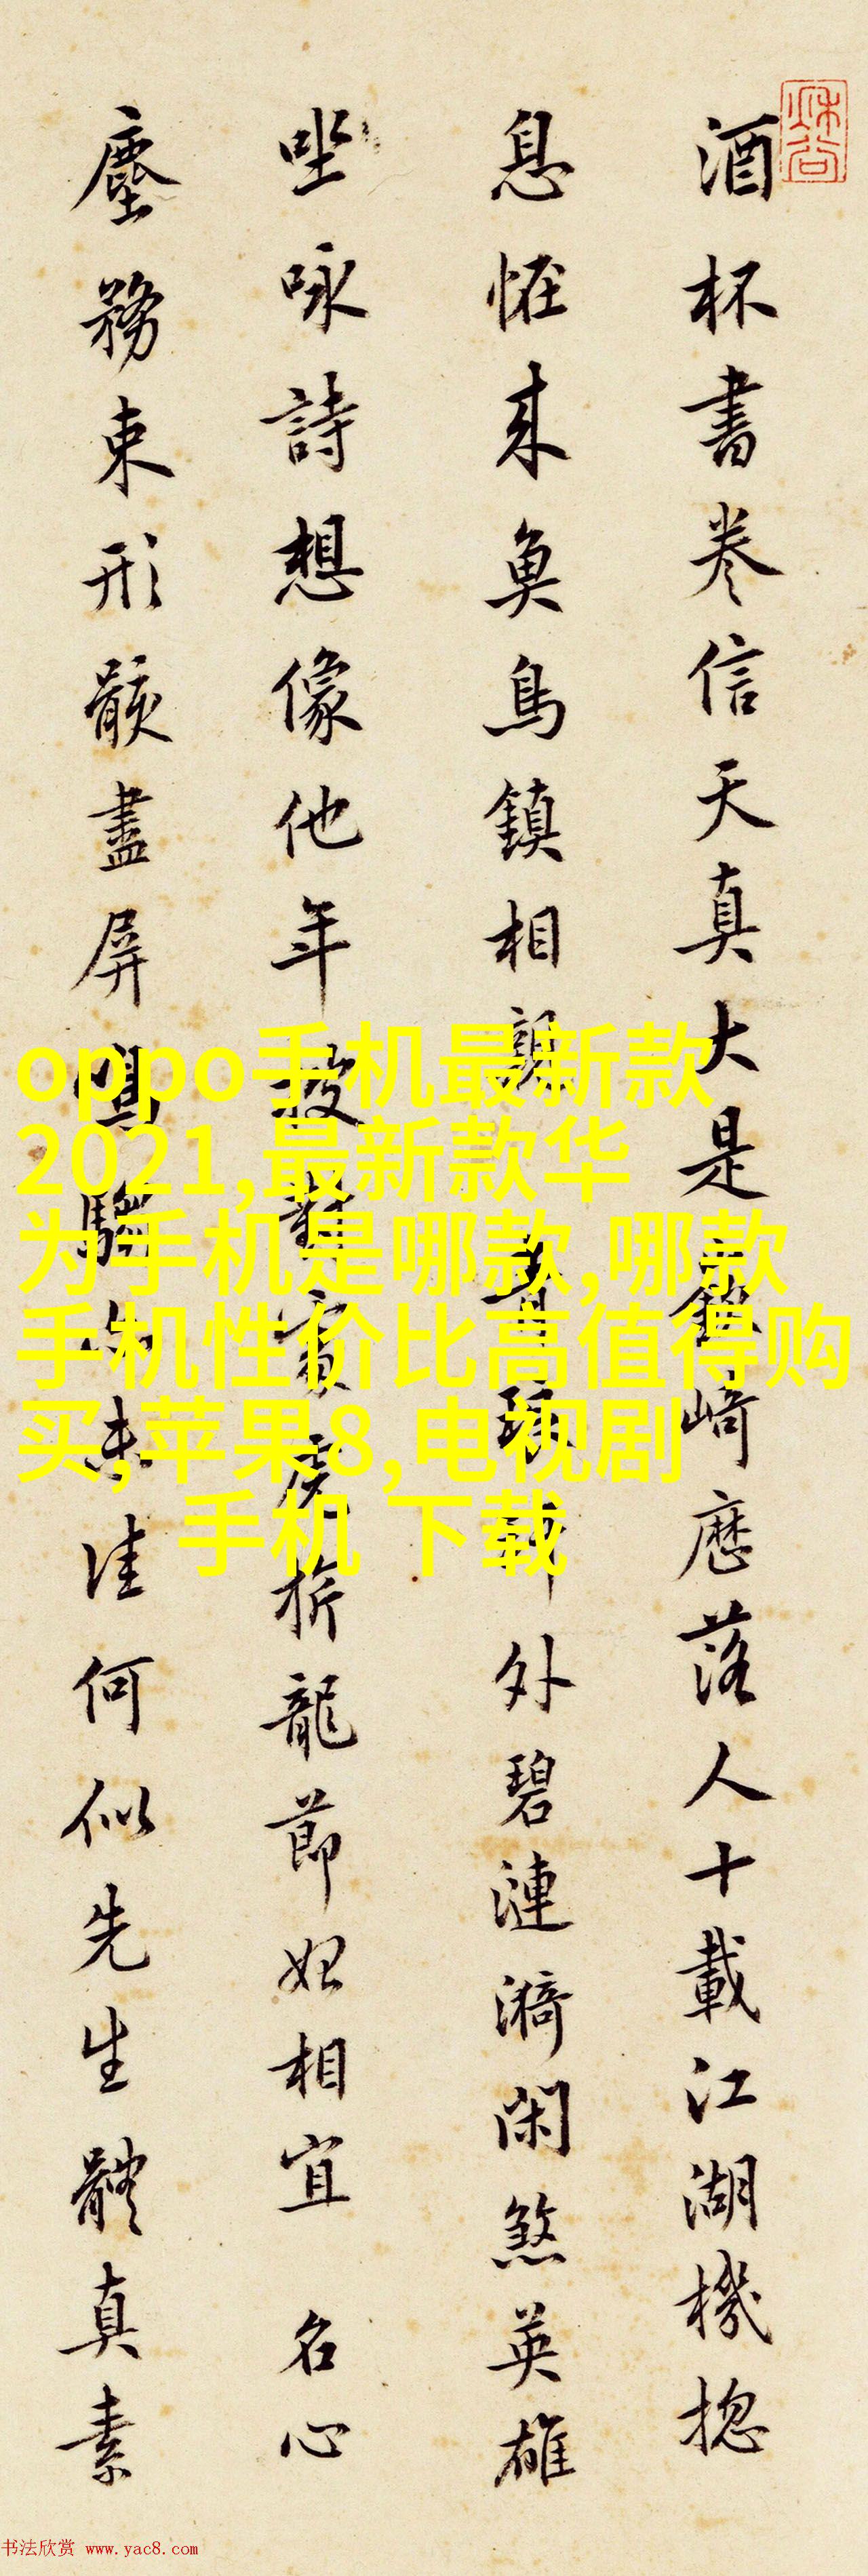 酒杯書卷信天真大是嶔崎歷落人十載江湖機揔
息恠來魚鳥鎮相親 外碧漣漪閑煞英雄
坐咏詩想像他年投對賓虎折龍節姒相宜 名心
塵務束形骸盡屏鳴騶向未佳何似先生體真素
oppo手机最新款
2021,最新款华
为手机是哪款,哪款
手机性价比高值得购
买,苹果8,电视剧
手机 下载
书法欣赏 www.yac8.com